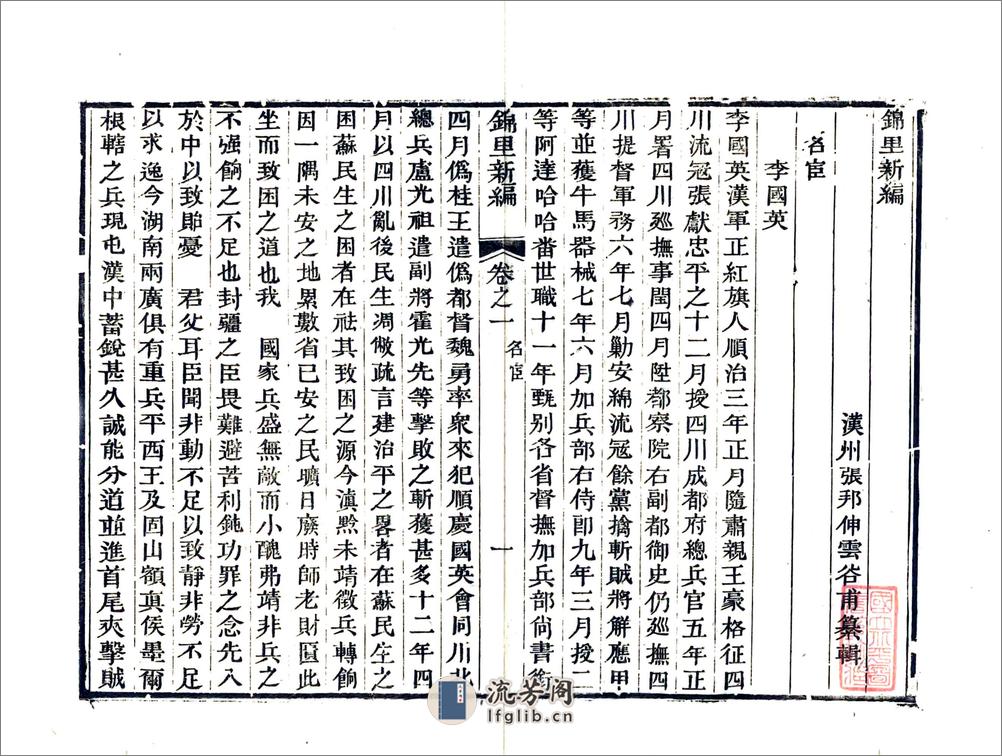 錦里新編
漢州張邦伸雲谷甫纂輯
名宦
李國英
李國英漢軍正紅旗人順治三年正月隨肅親王豪格征四
川流冦張獻忠平之十二月授四川成都府總兵官五年正
月署四川廵撫事閏四月陞都察院右副都御史仍廵撫四
川提督軍務六年七月勦安綿流冦餘黨擒斬賊將解應甲
等並獲牛馬器械七年六月加兵部右侍郎九年三月授二
等阿達哈哈番世職十一年甄别各省督撫加兵部尙書銜
錦里新編
卷之一
名宦
一
四月僞桂王遣僞都督魏勇率衆來犯順慶國英會同川北
總兵盧光祖遣副將霍光先等擊敗之斬獲甚多十二年四
月以四川亂後民生凋敝疏言建治平之畧者在蘇民生之
困蘇民生之困者在袪其致困之源今滇黔未靖徵兵轉餉
因一隅未安之地累數省已安之民曠日廢時師老財匱此
坐而致困之道也我 國家兵盛無敵而小醜弗靖非兵之
不强餉之不足也封疆之臣畏難避苦利鈍功罪之念先入
於中以致貽憂 君父耳臣聞非動不足以致靜非勞不足
以求逸今湖南兩廣俱有重兵平西王及固山額眞侯墨爾
根轄之兵現屯漢中蓄銳甚久誠能分道並進首尾夾擊賊
流芳阁
lfglib.cn